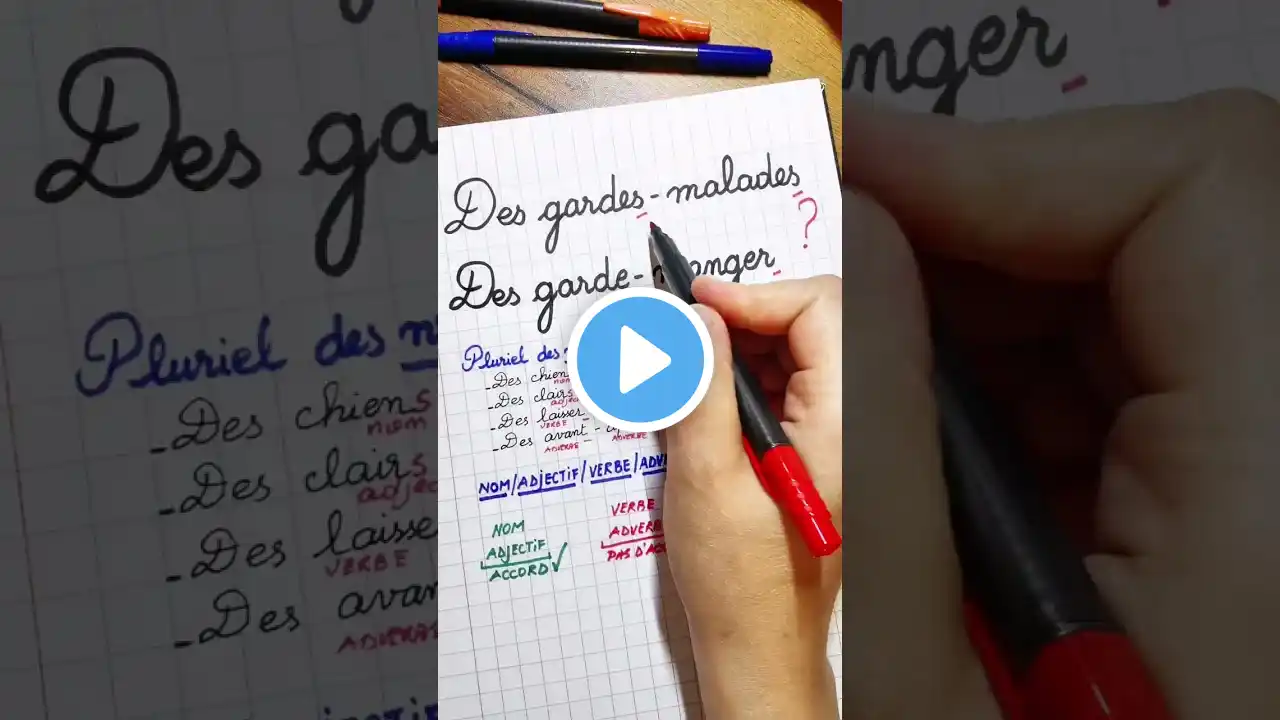 Des gardes-malades
?
Des garde-manger
Pluriel des
- Des chien
nom
- Des clairs
adjec
- Des laisser-
VERBE
- Des avant-
ADVERBE ADVERBE
NOM/ADJECTIF/VERBE/ADV
NOM
ADJECTIF
ACCORD ✓
VERBE
ADVERB
PAS D'ACC